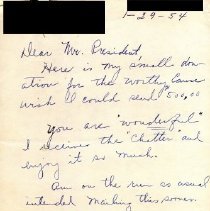 1-29-54
Dear Mr. President,
Here is my small don
ation for the worthy Cause
wish I could send $500,00
You are "wonderful"
I received the "Chatter" and
enjoy it so much.
Am on the run as usual
intended mailing this sooner.